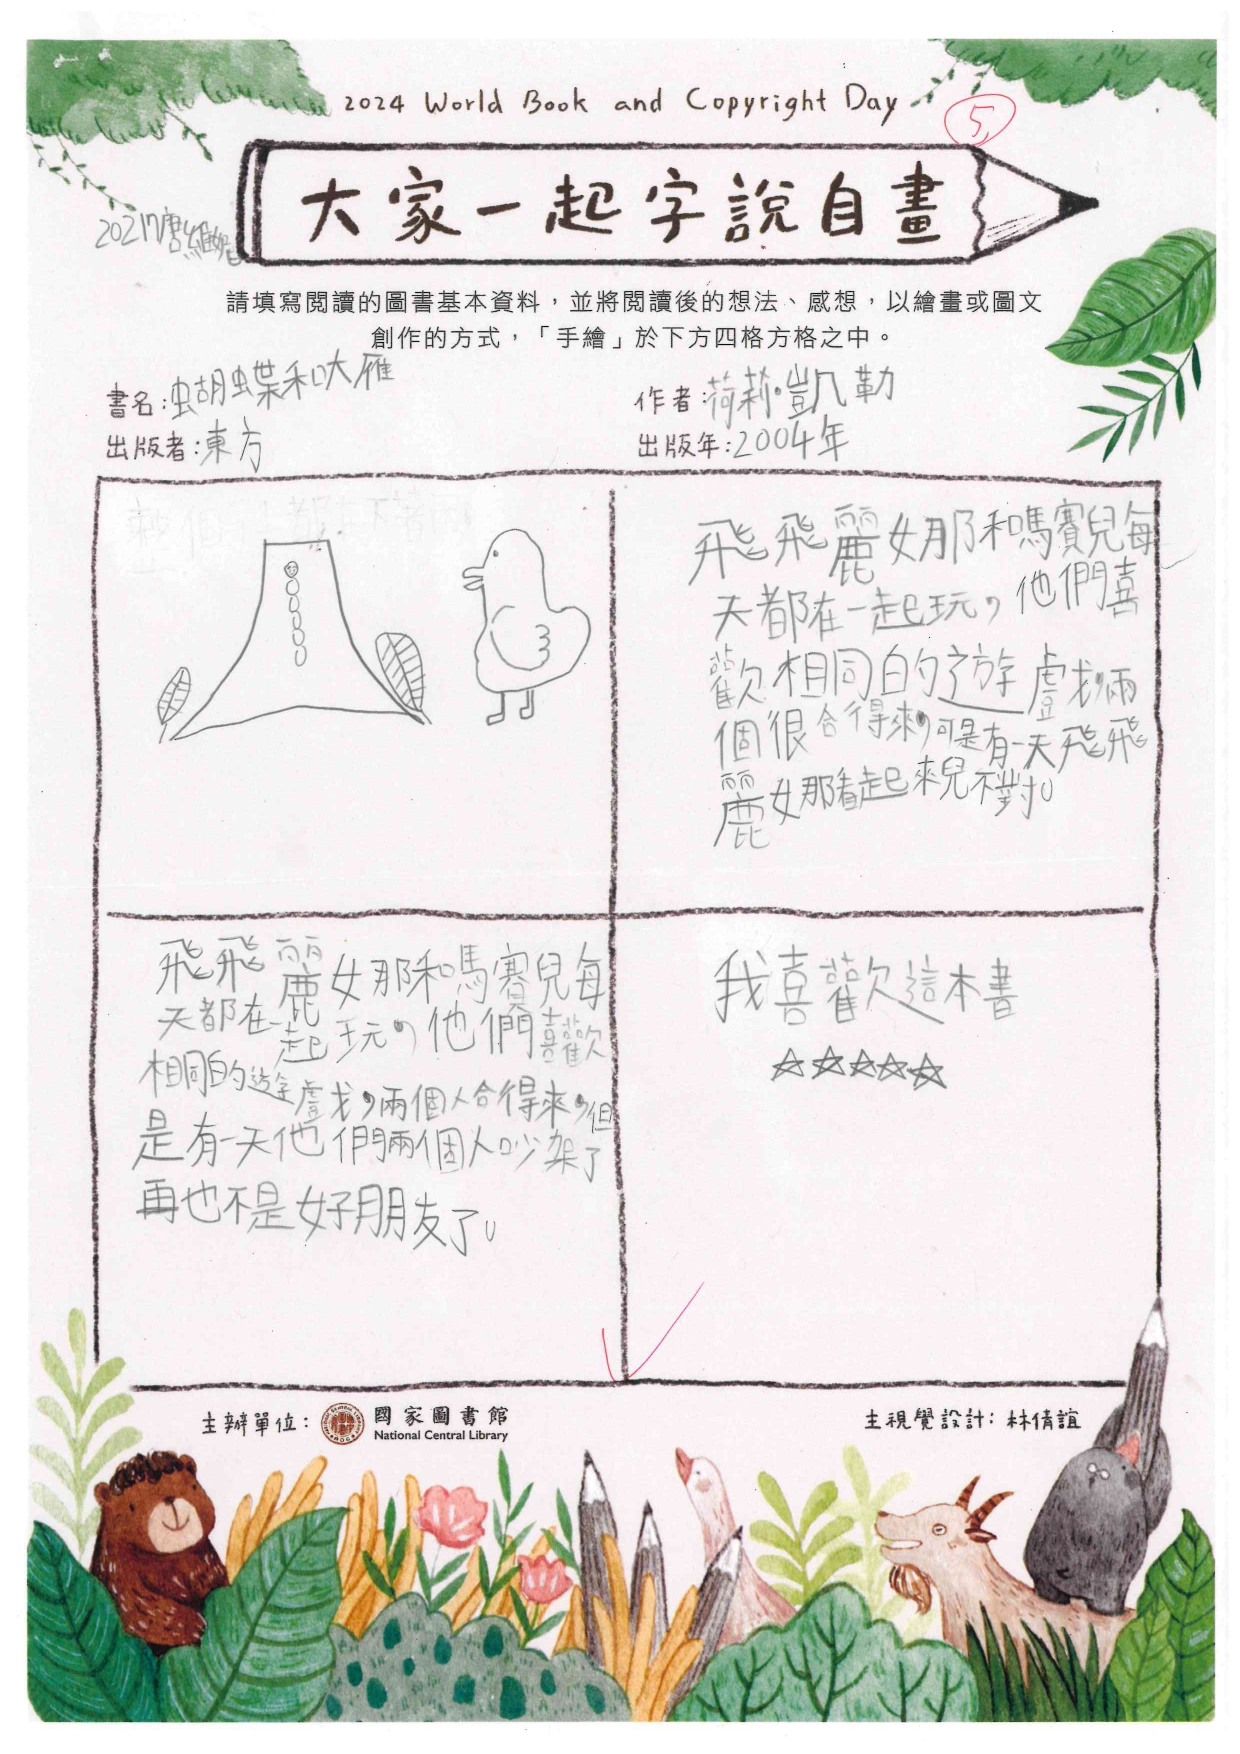 2024 World Book and Copyright Day
5
大家一起字說自畫
20217唐維
請填寫閱讀的圖書基本資料，並將閱讀後的想法、感想，以繪畫或圖文
創作的方式，「手繪」於下方四格方格之中。
書名:蝴蝶和大雁
作者:荷莉•凱勒
出版者:東方
出版年:2004年
飛飛麗女那和嗎賽兒每
天都在一起玩，他們喜
歡相同的遊戲，兩
個很合得來，可是有一天飛飛
麗女那看起來兒不對。
飛飛麗女那和嗎賽兒每
天都在一起玩，他們喜歡
相同的遊戲，兩個人合得來，但
是有一天他們兩個人吵架了
再也不是好朋友了。
我喜歡這本書
☆☆☆☆☆
主辦單位:
國家圖書館
National Central Library
主視覺設計: 林倩誼